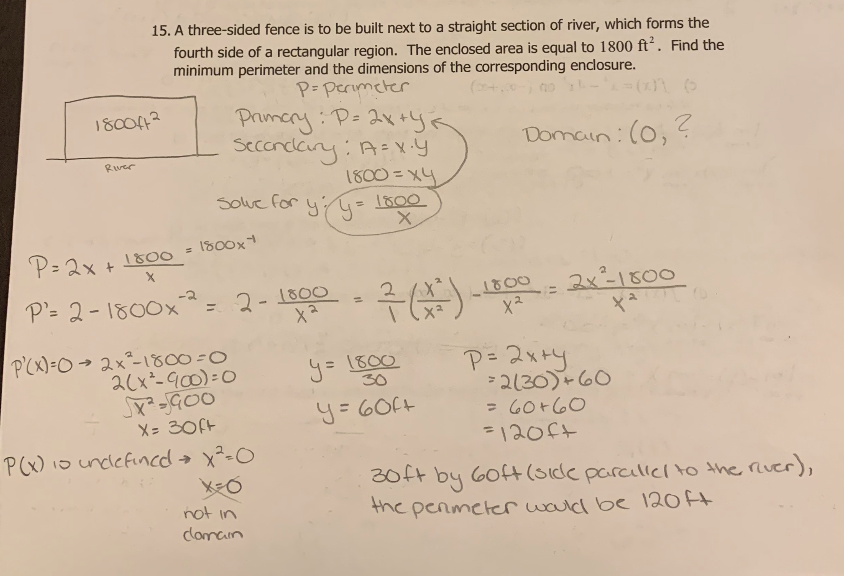 15. A three-sided fence is to be built next to a straight section of river, which forms the
fourth side of a rectangular region. The enclosed area is equal to 1800 ft². Find the
minimum perimeter and the dimensions of the corresponding enclosure.
P = perimeter
1800ft²
River
Primary : P = 2x + y
Secondary : A = x · y
1800 = xy
Solve for y: y = 1800/x
Domain : (0, ?
P = 2x + 1800/x = 1800x⁻¹
P' = 2 - 1800x⁻² = 2 - 1800/x² = 2/1 (x²/x²) - 1800/x² = 2x²-1800/x²
P'(x)=0 → 2x²-1800=0
2(x²-900)=0
√x² = √900
x = 30ft
y = 1800/30
y = 60ft
P = 2x+y
= 2(30)+60
= 60+60
= 120ft
P(x) is undefined → x²=0
x=0
not in
domain
30ft by 60ft (side parallel to the river),
the perimeter would be 120ft